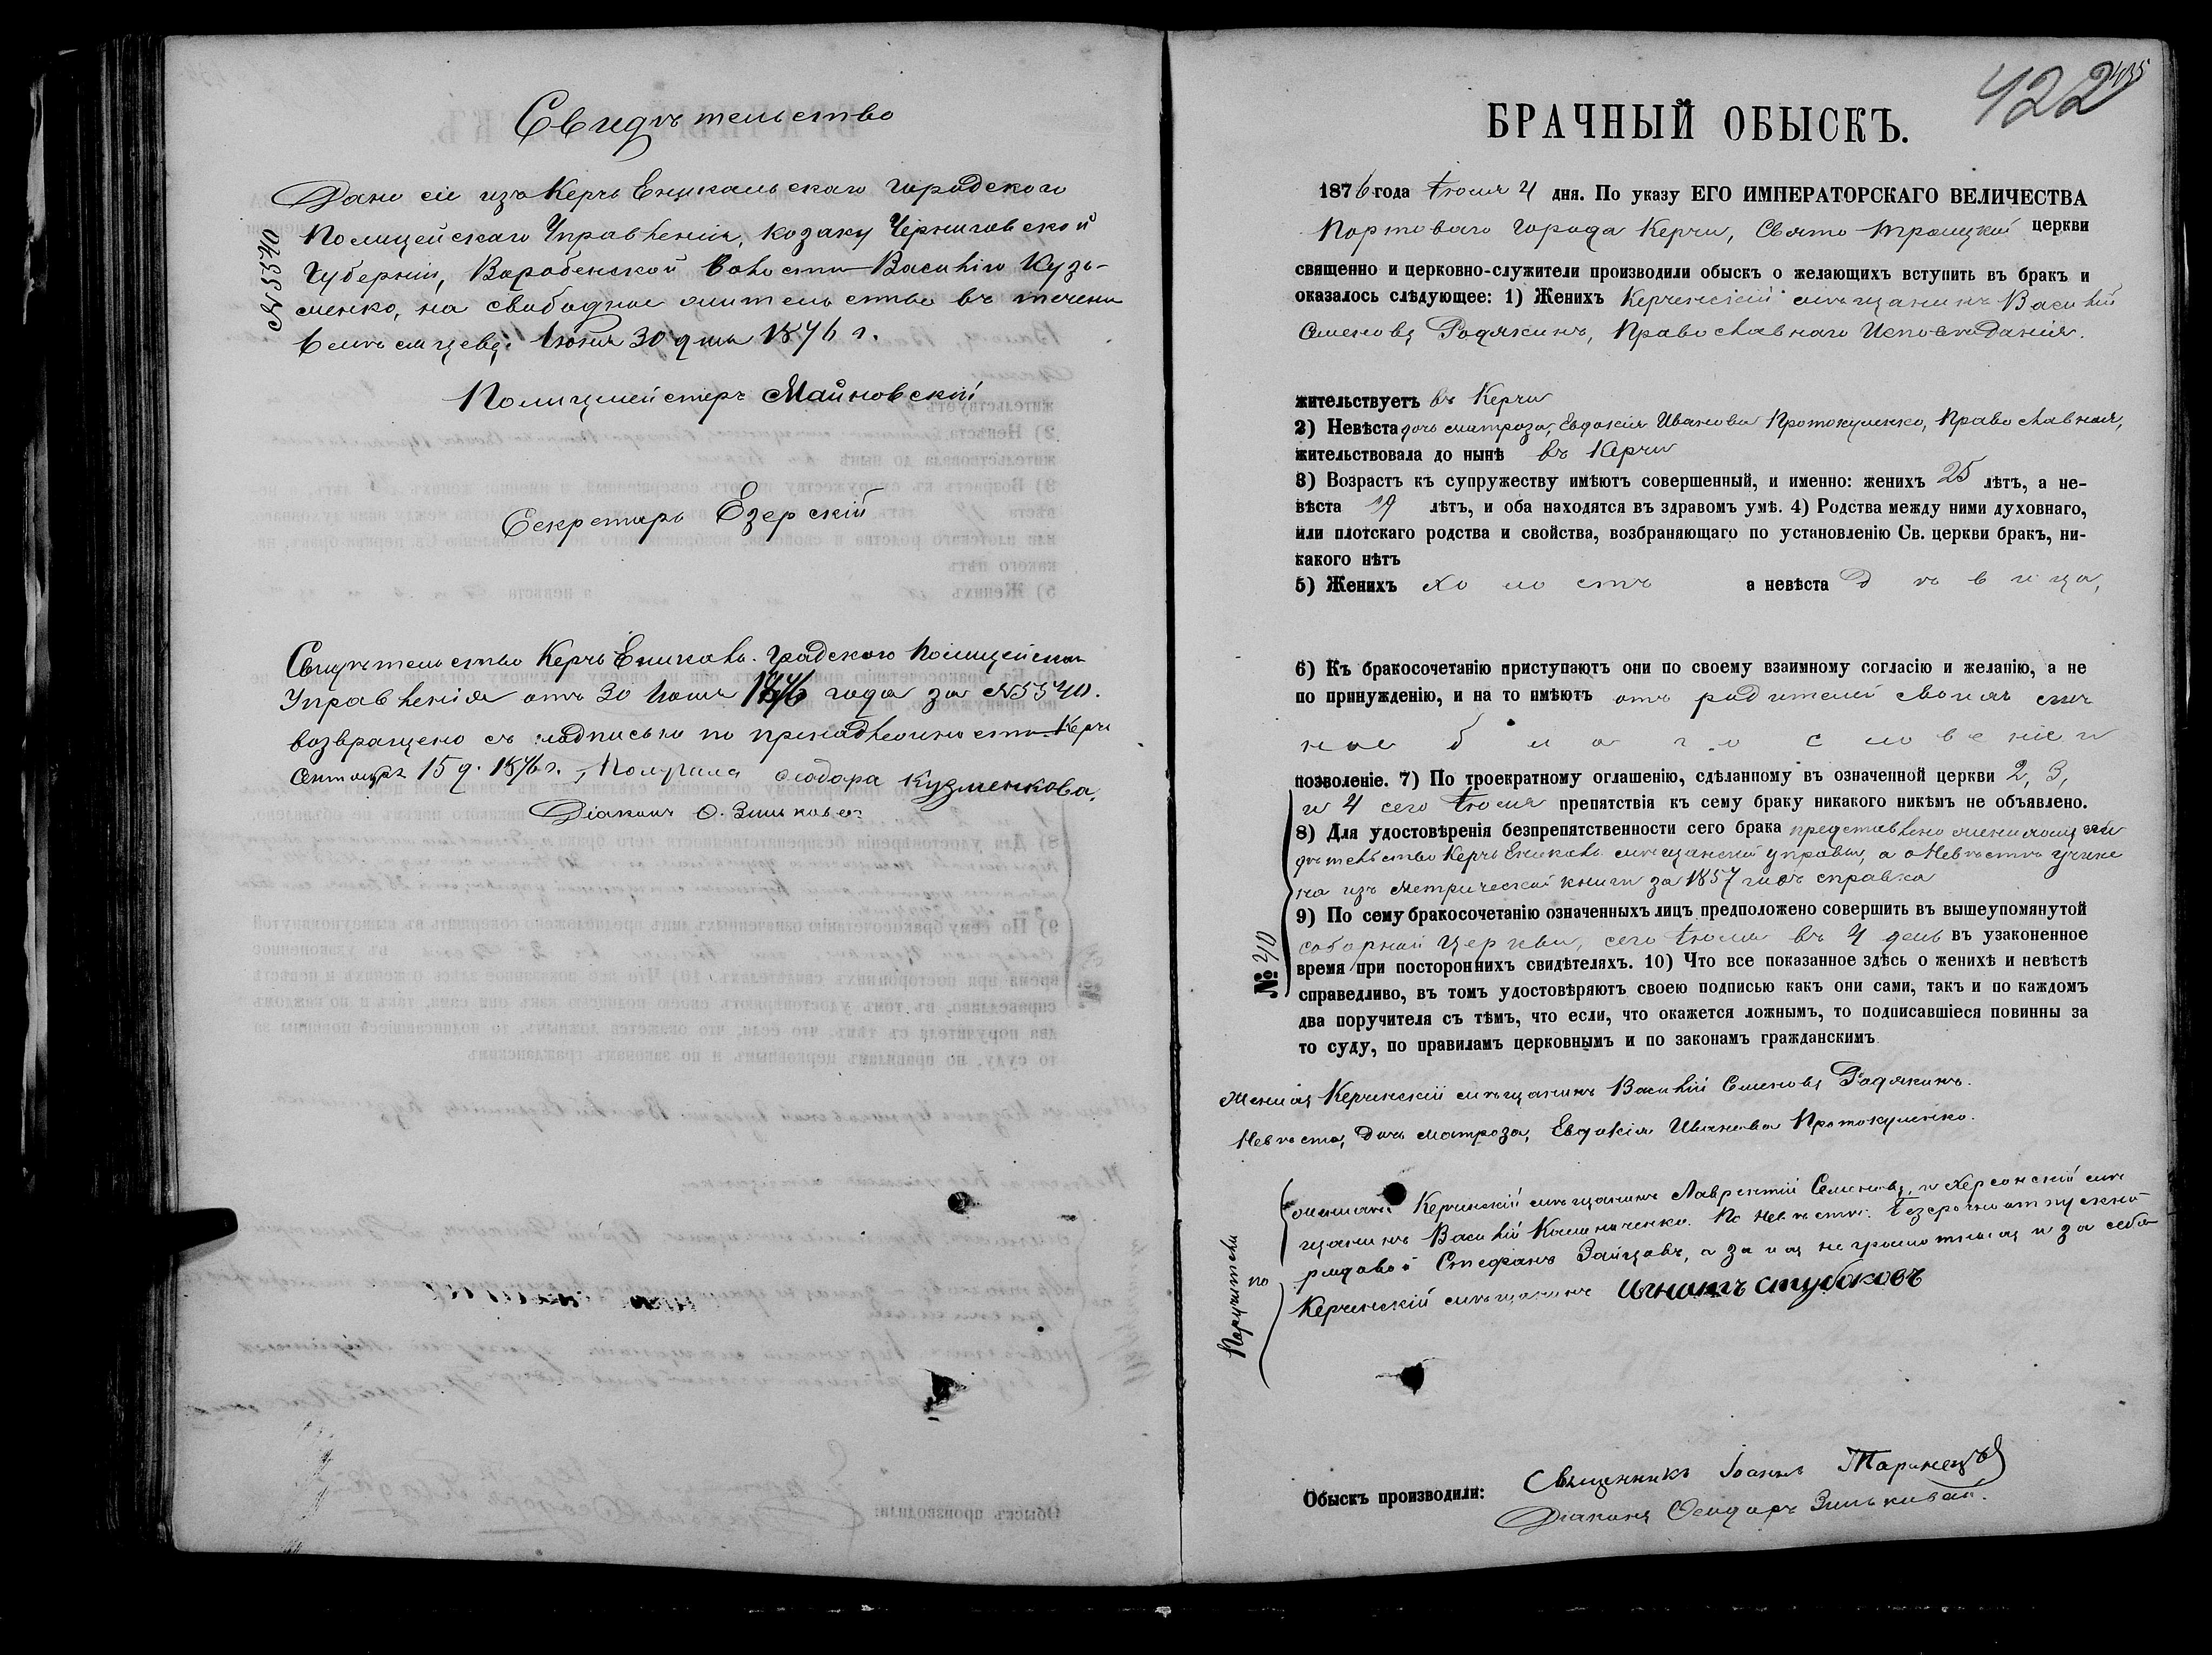 Свидѣтельство
№ 5540
Дано сіе изъ Керчь Еникальскаго городскаго
Полицейскаго Управленія, козаку Черниговской
Губерніи, Воробенской Волости Василію Кузь-
менко, на свободное жительство въ теченіи
6 мѣсяцевъ. Іюня 30 дня 1876 г.
Полицмейстеръ Майновскій
Секретарь Езерскій
Свидѣтельство Керчь Еникаль. Градского Полицейскаго
Управленія отъ 30 Іюня 1876 года за № 5540.
возвращено съ надписью по принадлежности Керчь
Сентября 15 д. 1876 г., Получила Федора Кузменкова.
Діаконъ Ѳ. Зиньковъ
422
435
БРАЧНЫЙ ОБЫСКЪ.
1876 года Іюля 4 дня. По указу ЕГО ИМПЕРАТОРСКАГО ВЕЛИЧЕСТВА
Портоваго города Керчи, Свято-Троицкой церкви
священно и церковно-служители производили обыскъ о желающихъ вступить въ бракъ и
оказалось слѣдующее: 1) Женихъ Керченскій мѣщанинъ Василій
Семеновъ Родякинъ, Православнаго Исповѣданія.
жительствуетъ въ Керчи
2) Невѣста дочь матроза, Евдокія Иванова Протокуленко, Православная,
жительствовала до нынѣ въ Керчи
3) Возрастъ къ супружеству имѣютъ совершенный, и именно: женихъ 25 лѣтъ, а не-
вѣста 19 лѣтъ, и оба находятся въ здравомъ умѣ. 4) Родства между ними духовнаго,
или плотскаго родства и свойства, возбраняющаго по установленію Св. церкви бракъ, ни-
какого нѣтъ
5) Женихъ холостъ а невѣста дѣвица,
6) Къ бракосочетанію приступаютъ они по своему взаимному согласію и желанію, а не
по принужденію, и на то имѣютъ отъ родителей своихъ сло
ное благословеніе и
позволеніе. 7) По троекратному оглашенію, сдѣланному въ означенной церкви 2, 3,
и 4 сего Іюля препятствія къ сему браку никакого никѣмъ не объявлено.
8) Для удостовѣренія безпрепятственности сего брака представлено женихомъ сви
дѣтельство Керчь Еникаль. мѣщанской управы, а о Невѣстѣ учине
на изъ метрической книги за 1857 годъ справка
9) По сему бракосочетанію означенныхъ лицъ предположено совершить въ вышеупомянутой
соборной церкви, сего Іюля въ 4 день въ узаконенное
время при постороннихъ свидѣтеляхъ. 10) Что все показанное здѣсь о женихѣ и невѣстѣ
справедливо, въ томъ удостовѣряютъ своею подписью какъ они сами, такъ и по каждомъ
два поручителя съ тѣмъ, что если, что окажется ложнымъ, то подписавшіеся повинны за
то суду, по правиламъ церковнымъ и по законамъ гражданскимъ
№ 40
Женихъ Керченскій мѣщанинъ Василій Семеновъ Родякинъ.
Невѣста, дочь матроза, Евдокія Иванова Протокуленко.
Поручители по
женихѣ Керченскій мѣщанинъ Лаврентій Семеновъ, и Херсонскій мѣ
щанинъ Василій Калиниченко. По Невѣстѣ: безсрочноотпускной
рядовой Стефанъ Зайцовъ, а за нихъ неграмотныхъ и за себя
Керченскій мѣщанинъ Игнатъ Стубаковъ
Обыскъ производили: Священникъ Іоаннъ Таринецъ
Діаконъ Ѳеодоръ Зиньковъ.